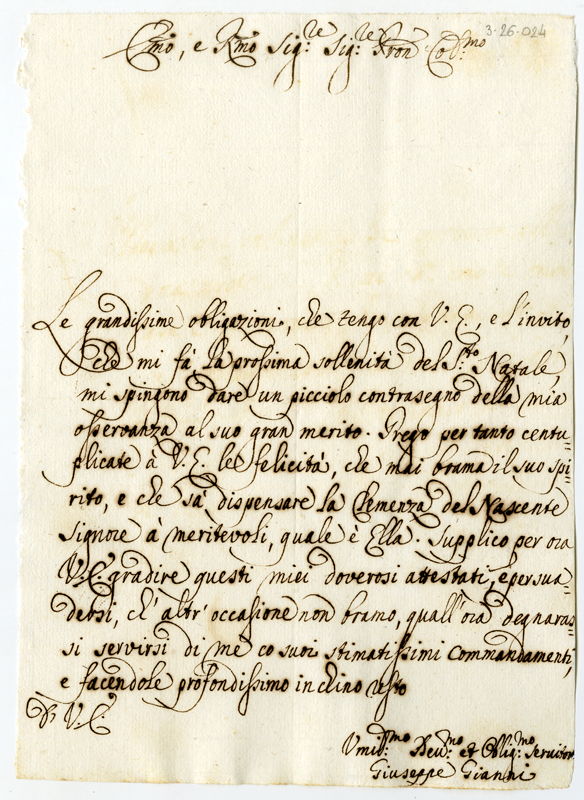 3·26·024
Emo, e Rmo Sig:re Sig:re Pron Co:mo
Le grandissime obligazioni, che tengo con V. E., e l'invito,
che mi fà la prossima sollenità del S:to Natale,
mi spingono dare un picciolo contrasegno della mia
osservanza al suo gran merito. Prego per tanto centu=
plicate à V. E. le felicità, che mai brama il suo spi=
rito, e che sà dispensare la Clemenza del Nascente
Signore à meritevoli, quale è Ella. Supplico per ora
V. E. gradire questi miei doverosi attestati, e persua=
dersi, ch'altr'occasione non bramo, quall'ora degnaras=
si servirsi di me co suoi stimatissimi commandamenti,
e facendole profondissimo inchino resto
D V. E.
Umil:mo Dev:mo et Oblig:mo servitore
Giuseppe Gianni